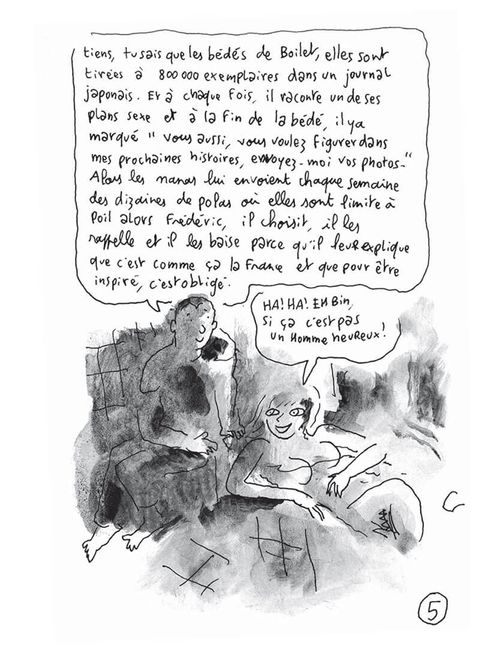 tiens, tu sais que les bédés de Boilet, elles sont
tirées à 800 000 exemplaires dans un journal
japonais. Et à chaque fois, il raconte un de ses
plans sexe et à la fin de la bédé, il y a
marqué " vous aussi, vous voulez figurer dans
mes prochaines histoires, envoyez-moi vos photos-"
Alors les nanas lui envoient chaque semaine
des dizaines de polas où elles sont limite à
poil alors Frédéric, il choisit, il les
rappelle et il les baise parce qu'il leur explique
que c'est comme ça la France et que pour être
inspiré, c'est obligé.
HA! HA! EH Bin,
si ça c'est pas
un Homme heureux!
5